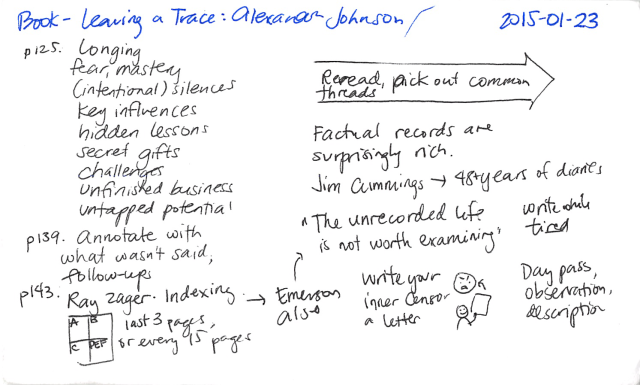 Book - Leaving a Trace: Alexandra Johnson/
2015-01-23
p125. Longing
fear, mastery
(intentional) silences
key influences
hidden lessons
secret gifts
challenges
unfinished business
untapped potential
p139. Annotate with
what wasn't said,
follow-ups
p143. Ray Zager. Indexing.
A B
C DEF
last 3 pages,
or every 15 pages
Reread, pick out common
threads
Factual records are
surprisingly rich.
Jim Cummings → 48+years of diaries
"The unrecorded life
is not worth examining"
→ Emerson
also
write while
tired
Write your
inner censor
a letter
Day pass,
observation,
description